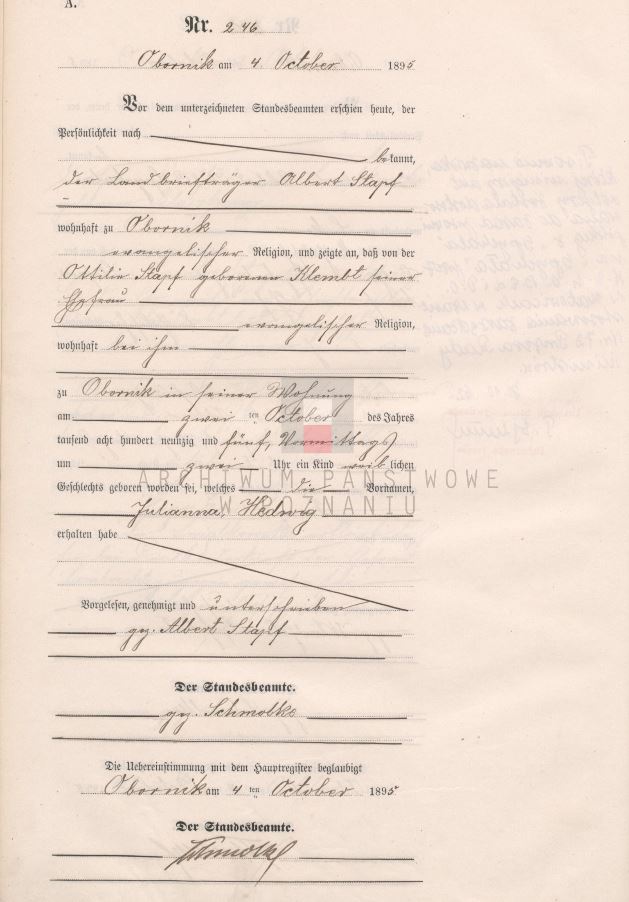 A.
Nr. 246
Obornik am 4 October 1895
Vor dem unterzeichneten Standesbeamten erschien heute, der
Persönlichkeit nach
bekannt,
der Landbriefträger Albert Stapf
wohnhaft zu Obornik
evangelischer Religion, und zeigte an, daß von der
Ottilie Stapf geborenen Klembt seiner
Ehefrau
evangelischer Religion,
wohnhaft bei ihm
zu Obornik in seiner Wohnung
am zwei ten October des Jahres
tausend acht hundert neunzig und fünf, Vormittags
um zwei Uhr ein Kind weib lichen
Geschlechts geboren worden sei, welches die Vornamen,
Julianna, Hedwig
erhalten habe
Vorgelesen, genehmigt und unterschrieben
gez. Albert Stapf
Der Standesbeamte.
gez. Schmolke
Die Uebereinstimmung mit dem Hauptregister beglaubigt
Obornik am 4 ten October 1895
Der Standesbeamte.
Schmolke
ARCHIWUM PAŃSTWOWE
W POZNANIU